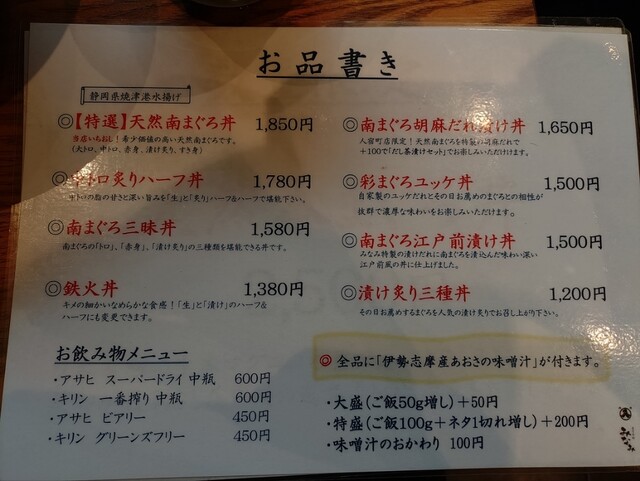 お品書き
静岡県焼津港水揚げ
◎【特選】天然南まぐろ丼 1,850円
当店いちおし!希少価値の高い天然南まぐろです。
(大トロ、中トロ、赤身、漬け炙り、すき身)
トロ炙りハーフ丼 1,780円
トロの脂の甘さと深い旨みを「生」と「炙り」ハーフ&ハーフで堪能下さい。
◎南まぐろ三昧丼 1,580円
南まぐろの「トロ」、「赤身」、「漬け炙り」の三種類を堪能できる丼です。
◎鉄火丼 1,380円
キメの細かいなめらかな食感!「生」と「漬け」のハーフ&
ハーフにも変更できます。
お飲み物メニュー
・アサヒ スーパードライ 中瓶 600円
・キリン 一番搾り 中瓶 600円
・アサヒ ビアリー 450円
・キリン グリーンズフリー 450円
◎南まぐろ胡麻だれ漬け丼 1,650円
人宿町店限定!天然南まぐろを特製の胡麻だれで
+100で「だし茶漬けセット」でお楽しみいただけます。
◎彩まぐろユッケ丼 1,500円
自家製のユッケだれとその日お薦めのまぐろとの相性が
抜群で濃厚な味わいをお楽しみいただけます。
◎南まぐろ江戸前漬け丼 1,500円
みなみ特製の漬けだれに南まぐろを漬込んだ味わい深い
江戸前風の丼に仕上げました。
◎漬け炙り三種丼 1,200円
その日お薦めするまぐろを人気の漬け炙りでお召し上がり下さい。
◎ 全品に「伊勢志摩産あおさの味噌汁」が付きます。
・大盛(ご飯50g増し)+50円
・特盛(ご飯100g+ネタ1切れ増し)+200円
・味噌汁のおかわり 100円
みなみ